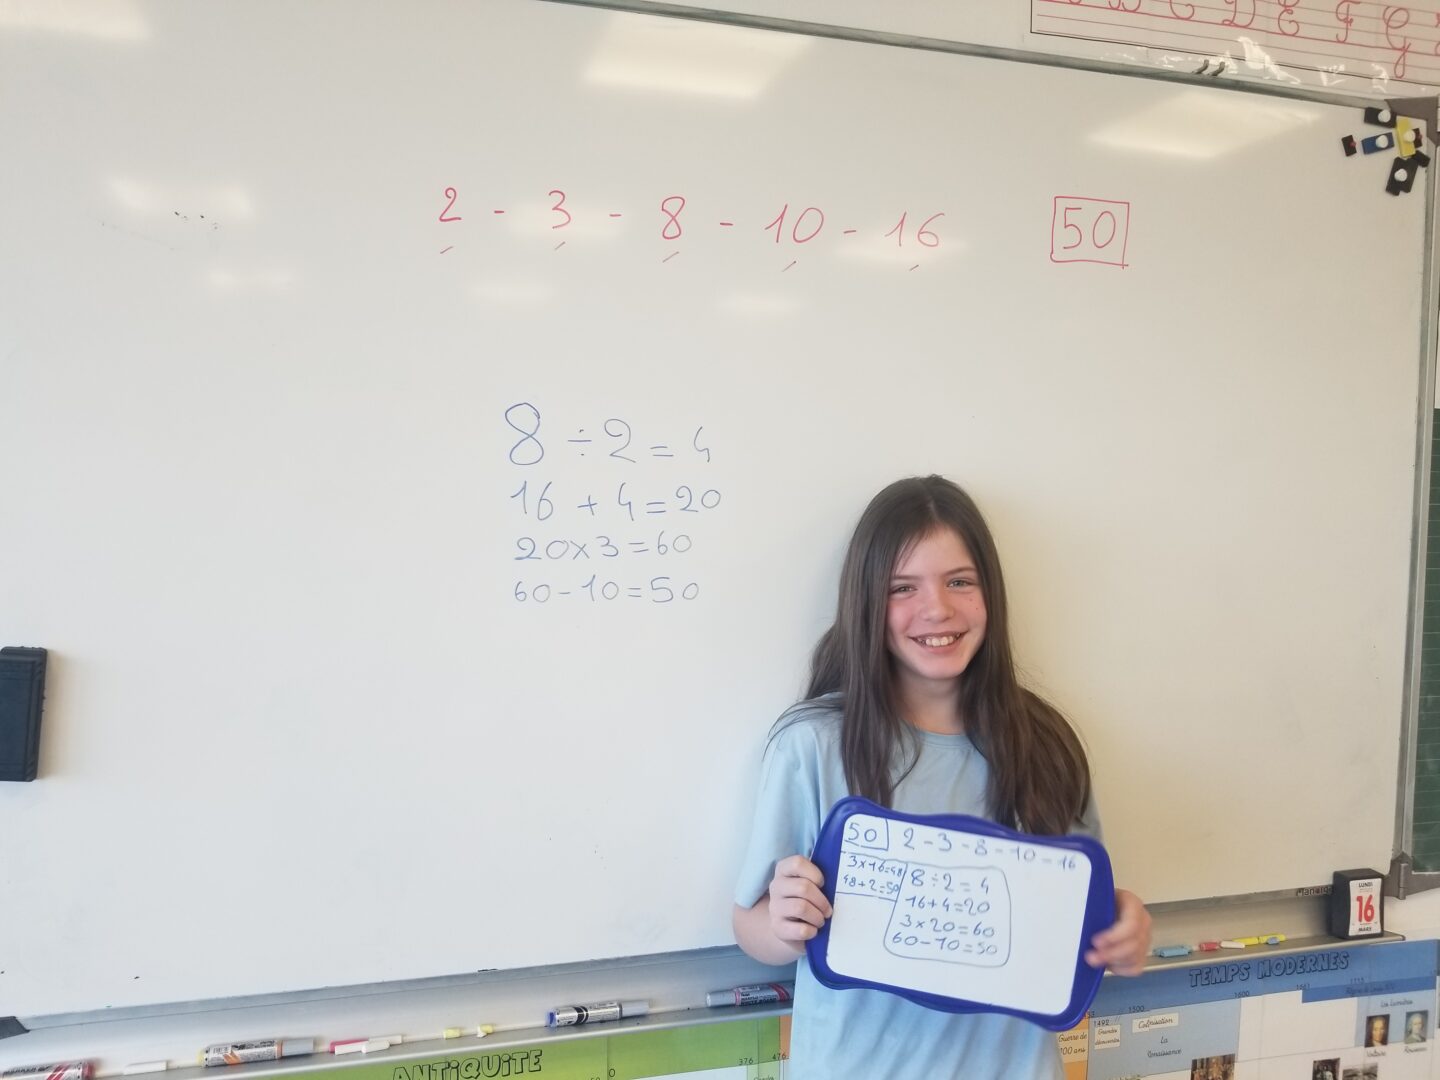 B C D E F G
2 - 3 - 8 - 10 - 16 50
8 ÷ 2 = 4
16 + 4 = 20
20 x 3 = 60
60 - 10 = 50
50 2 - 3 - 8 - 10 - 16
3 x 16 = 48
48 + 2 = 50
8 ÷ 2 = 4
16 + 4 = 20
3 x 20 = 60
60 - 10 = 50
LUNDI
16
MARS
ANTiQUiTE
376 476
TEMPS MODERNES
1492 1500 1600 1661
Guerre de
100 ans
Grandes
découvertes
Colonisation
La
Renaissance
Les Lumières
Voltaire
Rousseau